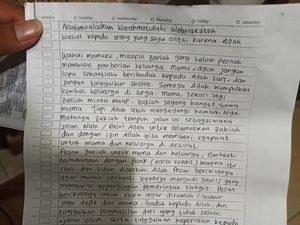 sunday tuesday wednesday thursday friday saturday
Assalamualaikum Warahmatullahi Wabarakatuh
Wasiat kepada orang yang saya cintai karena Allah
Wahai mamaku, maafin zakiah yang belum pernah
membalas pemberian keluarga. Mama - ayah jangan
lupa senantiasa beribadah kepada Allah SWT - dan
jangan tinggalkan sholat. Semoga Allah kumpulkan
kembali keluarga di surga. Mama, sekali lagi,
zakiah minta maaf. zakiah sayang banget sama
mama. Tapi Allah lebih menyayangi hamba-Nya.
Makanya zakiah tempuh jalan ini sebagaimana
jalan Nabi / Rasul Allah untuk selamatkan zakiah
dan dengan izin Allah bisa memberi syafaat
untuk mama dan keluarga di akhirat.
Pesan zakiah untuk mama dan keluarga, berhenti
berhubungan dengan Bank (kartu kredit) karena itu
riba dan tidak diberkahi Allah. Pesan berikutnya
agar mama berhenti bekerja menjadi Dawis yang
membantu kepentingan pemerintah thogut. Pesan
berikutnya untuk kaka agar dirumah Cibubur
jaga dede dan mama, ibadah kepada Allah, dan
tinggalkan penghasilan dari yang tidak sesuai
ajaran Islam. serta tinggalkan kepercayaan kepada